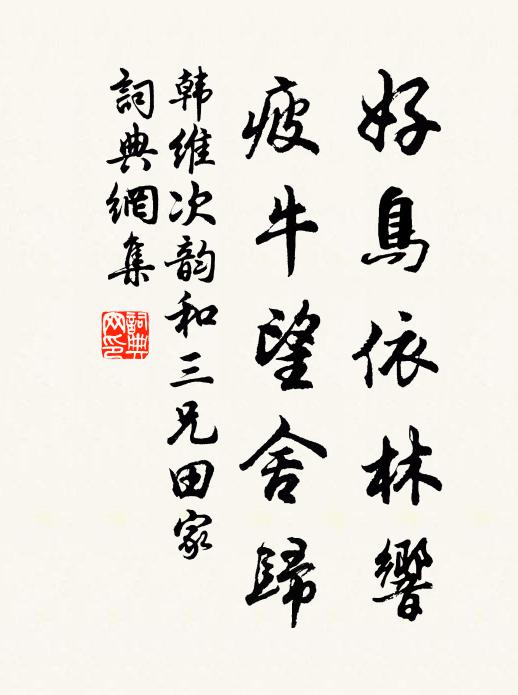 好鳥依林響
疲牛望舍歸
韩維次韵和三兄田家
詞典網集
詞典網印